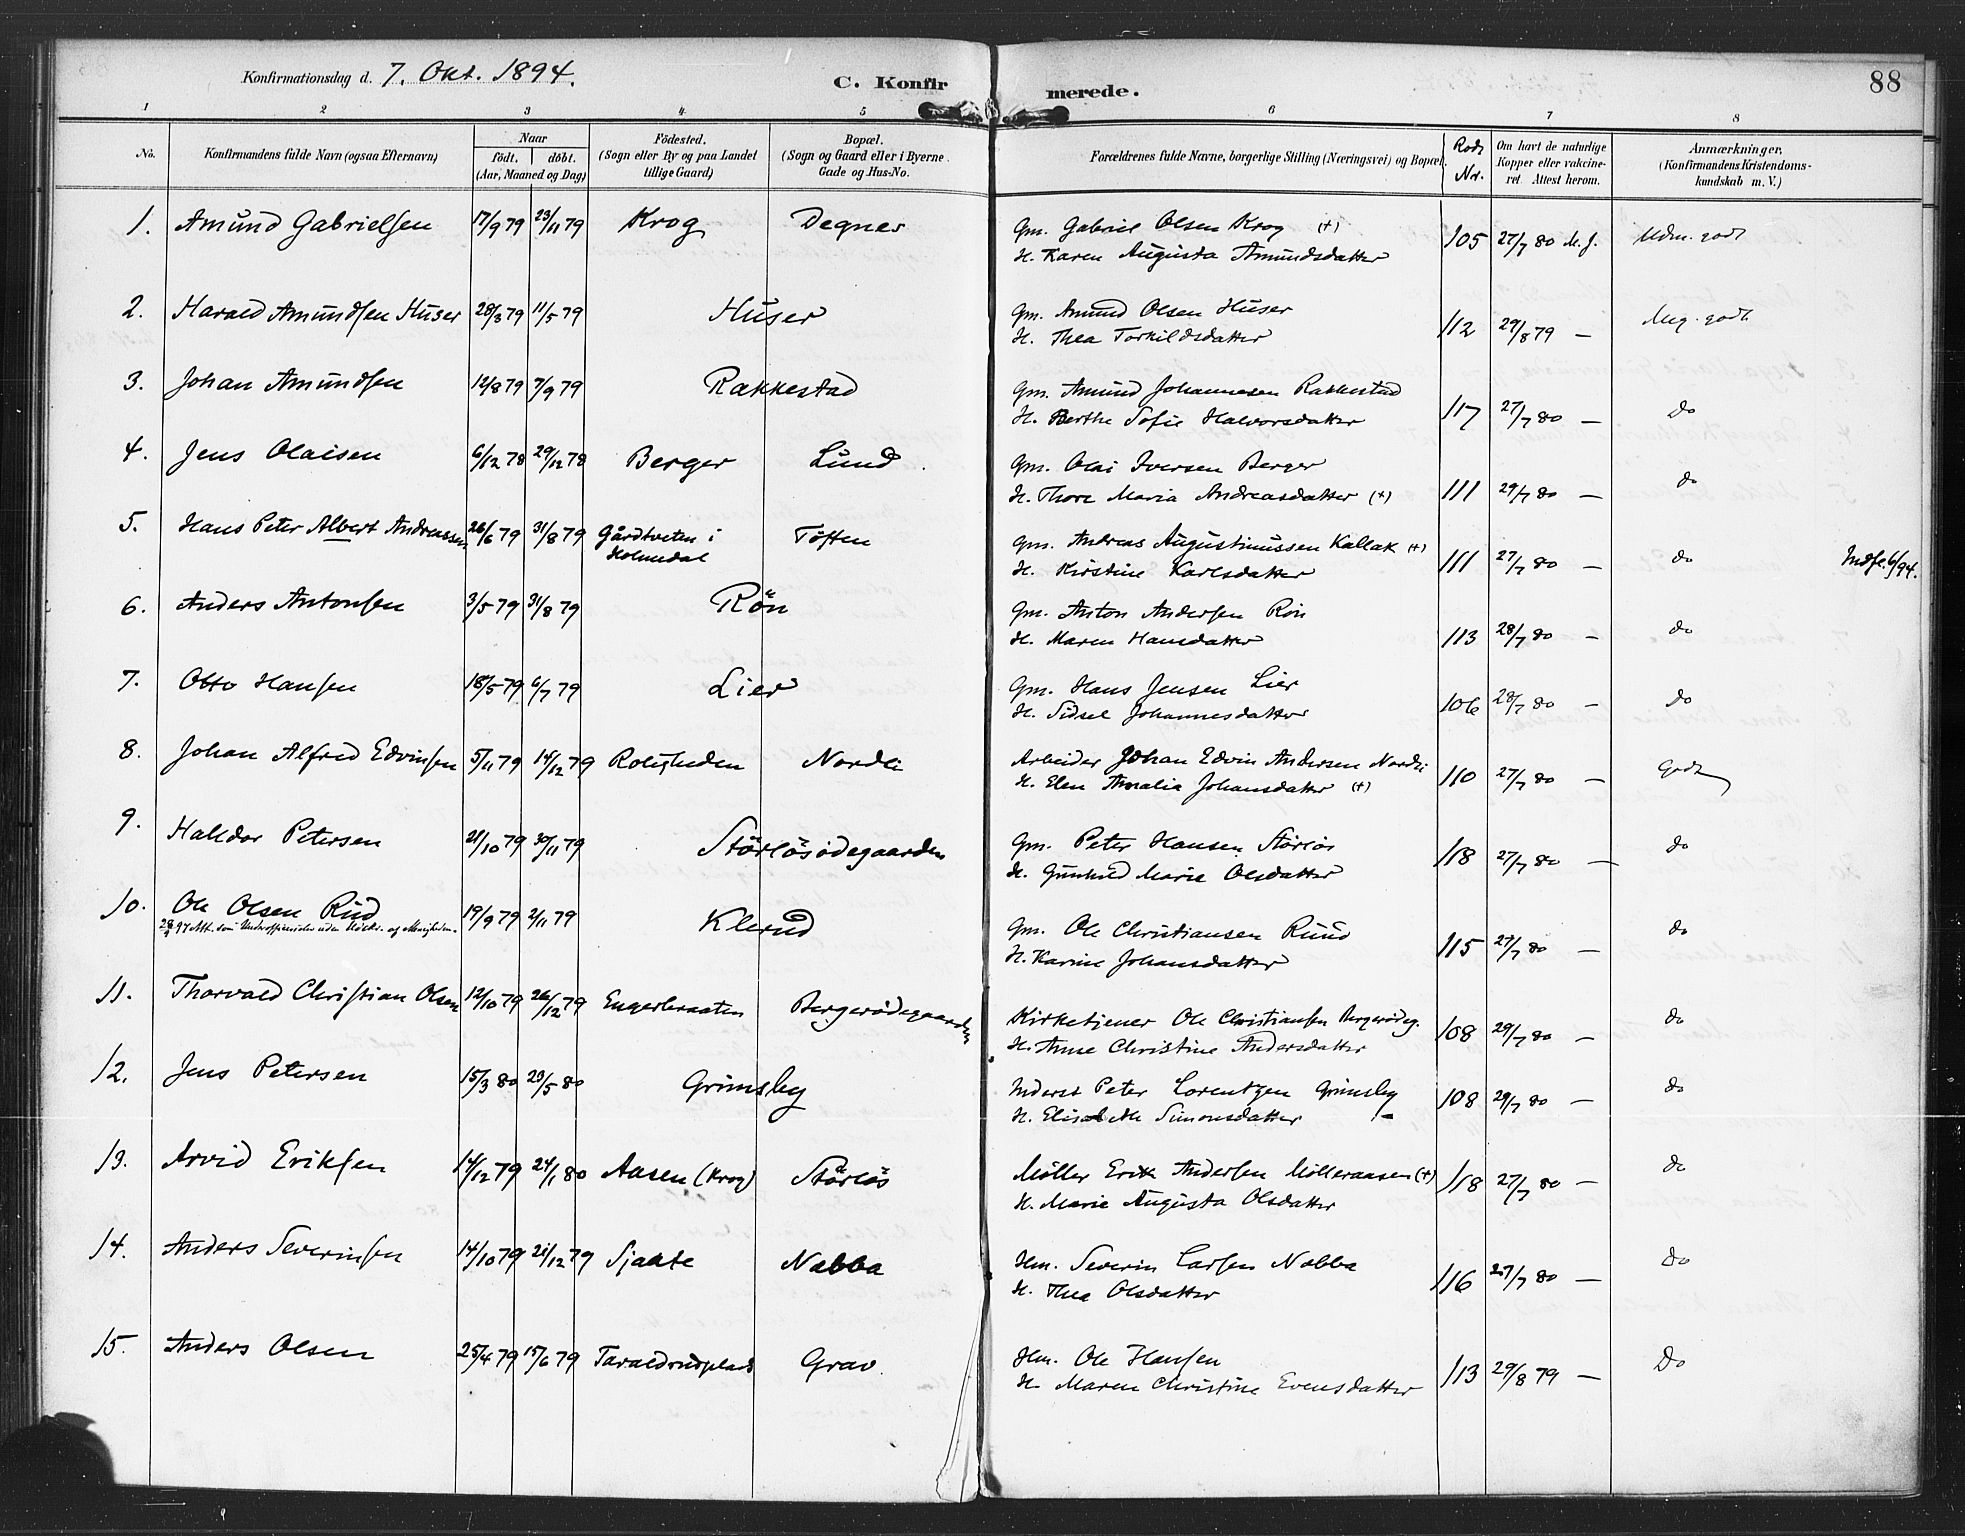 Konfirmationsdag d. 7. Okt. 1894.
C. Konfirmerede.
88
1 2 3 4 5 6 7 8
No.
Konfirmandens fulde Navn (ogsaa Efternavn)
Naar
født. døbt.
(Aar, Maaned og Dag)
Fødested.
(Sogn eller By og paa Landet
tillige Gaard)
Bopæl.
(Sogn og Gaard eller i Byerne
Gade og Hus-No.
Forældrenes fulde Navne, borgerlige Stilling (Næringsvei) og Bopæl.
Rode
Nr.
Om havt de naturlige
Kopper eller vakcine-
ret. Attest herom.
Anmærkninger,
(Konfirmandens Kristendoms-
kundskab m. V.)
1. Amund Gabrielsen 17/9 79 23/11 79 Krog Degnes Gm. Gabriel Olsen Krog (+) 105 27/7 80 M. f. Udm. godt
H. Karen Augusta Amundsdatter
2. Harald Amundsen Huser 28/3 79 11/5 79 Huser Gm. Amund Olsen Huser 112 29/8 79 — Meg. godt
H. Thea Torkildsdatter
3. Johan Amundsen 12/8 79 7/9 79 Rakkestad Gm. Amund Johannesen Rakkestad 117 27/7 80 — do
H. Berthe Sofie Halvorsdatter
4. Jens Olaisen 6/12 78 29/12 78 Berger Lund Gm. Olai Iversen Berger 111 29/7 80 — do
H. Thore Maria Andreasdatter (+)
5. Hans Peter Albert Andreassen 26/6 79 31/8 79 Gårdtveten i Töften Gm. Andreas Augustinussen Kallak (+) 111 27/7 80 — do Indfl. 6/94.
Holmedal H. Kirstine Karlsdatter
6. Anders Antonsen 3/5 79 31/8 79 Rön Gm. Anton Andersen Rön 113 28/7 80 — do
H. Maren Hansdatter
7. Otto Hansen 18/5 79 6/7 79 Lier Gm. Hans Jensen Lier 106 28/7 80 — do
H. Sidsel Johannesdatter
8. Johan Alfred Edvinsen 5/11 79 14/12 79 Roligheden Nordli Arbeider Johan Edvin Andersen Nordli 110 27/7 80 — Godt
H. Elen Amalia Johansdatter (+)
9. Halldor Petersen 21/10 79 30/11 79 Störlösødegaarden Gm. Peter Hansen Störlös 118 27/7 80 — do
H. Gunhild Marie Olsdatter
10. Ole Olsen Rud 19/9 79 2/11 79 Klerud Gm. Ole Christiansen Ruud 115 27/7 80 — do
H. Karine Johansdatter
11. Thorvald Christian Olsen 12/10 79 26/12 79 Engerbraaten Bergerødegaarden Kirketjener Ole Christiansen Bergerødeg. 108 29/7 80 — do
H. Anne Christine Andersdatter
12. Jens Petersen 15/3 80 23/5 80 Grimsby Inderst Peter Lorentzen Grimsby 108 29/7 80 — do
H. Elisabeth Simonsdatter
13. Arvid Eriksen 14/12 79 24/1 80 Aasen (Krog) Störlös Møller Erik Andersen Mølleraasen (+) 118 27/7 80 — do
H. Marie Augusta Olsdatter
14. Anders Severinsen 14/10 79 21/12 79 Sjaate Nabba Hm. Severin Larsen Nabba 116 27/7 80 — Do
H. Thea Olsdatter
15. Anders Olsen 25/4 79 15/6 79 Taraldrudplads Grav Hm. Ole Hansen 113 29/8 79 — Do
H. Maren Christine Evensdatter